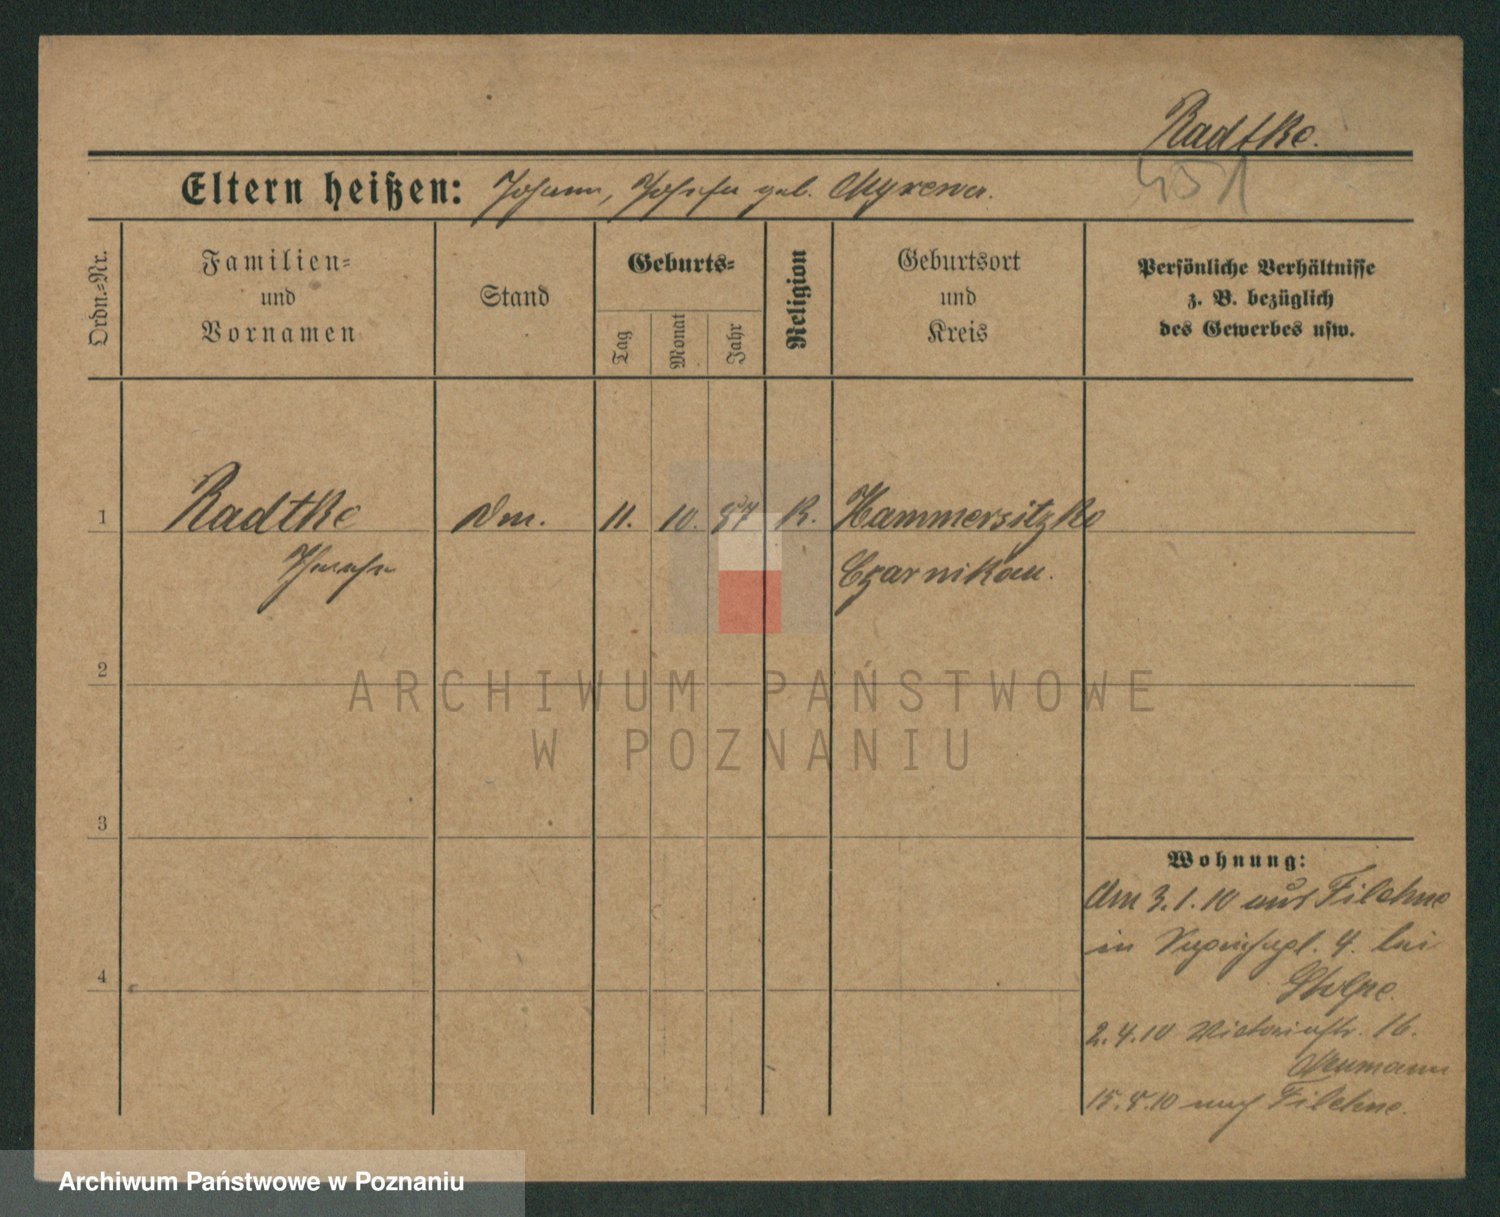 Radtke.
451
Eltern heißen: Johann, Josefa geb.
Ordn.-Nr.
Familien-
und
Vornamen
Stand
Geburts-
Tag
Monat
Jahr
Religion
Geburtsort
und
Kreis
Persönliche Verhältnisse
z. B. bezüglich
des Gewerbes usw.
1 Radtke 11. 10. 87 K. Hammersitzko
Czarnikau.
2
ARCHIWUM PAŃSTWOWE
W POZNANIU
3
Wohnung:
Am 3.1.10 aus Filehne
in 4. bei
Stolpe.
4
2.4.10 Victoriastr. 16.
Neumann
15.5.10 nach Filehne.
Archiwum Państwowe w Poznaniu